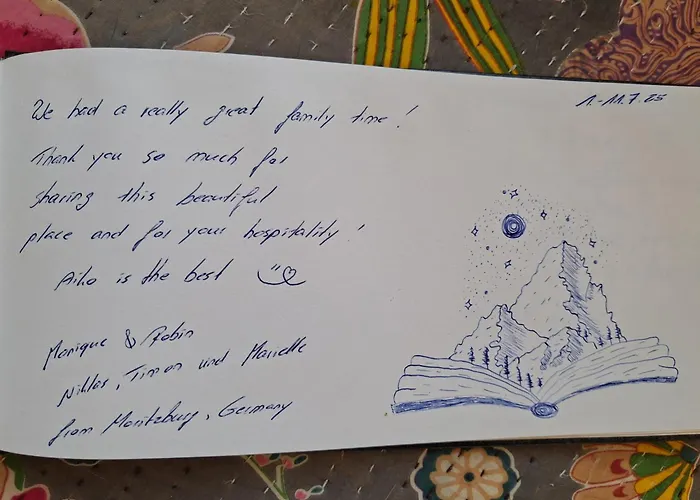 1.-11.7.25
We had a really great family time!
Thank you so much for
sharing this beautiful
place and for your hospitality!
Aiko is the best
Monique & Robin
Niklas, Timon und Marielle
from Moritzburg, Germany